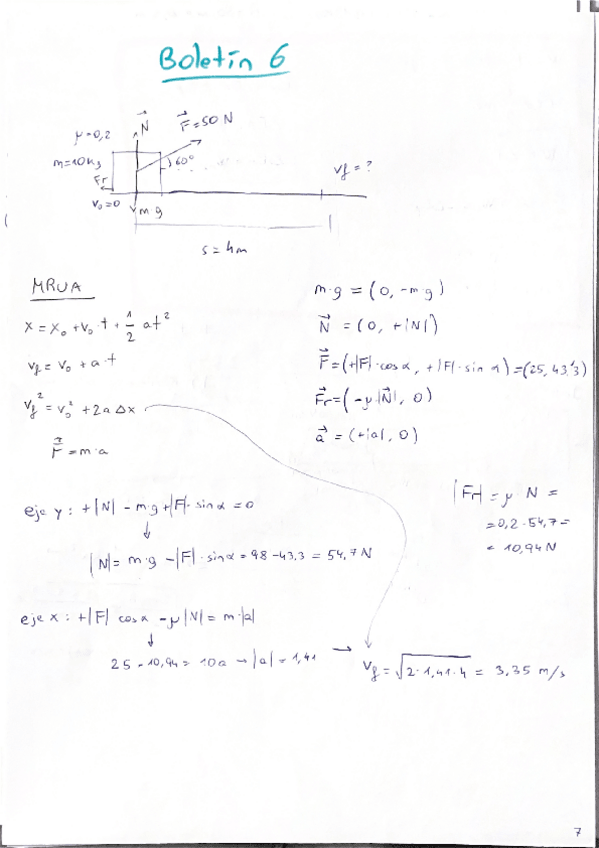 Boletín 6
N⃗
F⃗ = 50 N
μ=0,2
60°
m=10kg
Fr
vf = ?
v₀=0
m·g
s = 4m
MRUA
x = x₀ + v₀·t + 1/2 at²
vf = v₀ + a·t
vf² = v₀² + 2a Δx
F⃗ = m·a
m·g = (0, -m·g)
N⃗ = (0, +|N|)
F⃗ = (+|F|·cos α, +|F|·sin α) = (25, 43,3)
F⃗r = (-μ|N⃗|, 0)
a⃗ = (+|a|, 0)
eje y: +|N| - m·g + |F|·sin α = 0
|N| = m·g - |F|·sin α = 98 - 43,3 = 54,7 N
|Fr| = μ·N =
= 0,2·54,7 =
= 10,94 N
eje x: +|F| cos α - μ|N| = m·|a|
25 - 10,94 = 10a → |a| = 1,41 → vf = √2·1,41·4 = 3,35 m/s
7